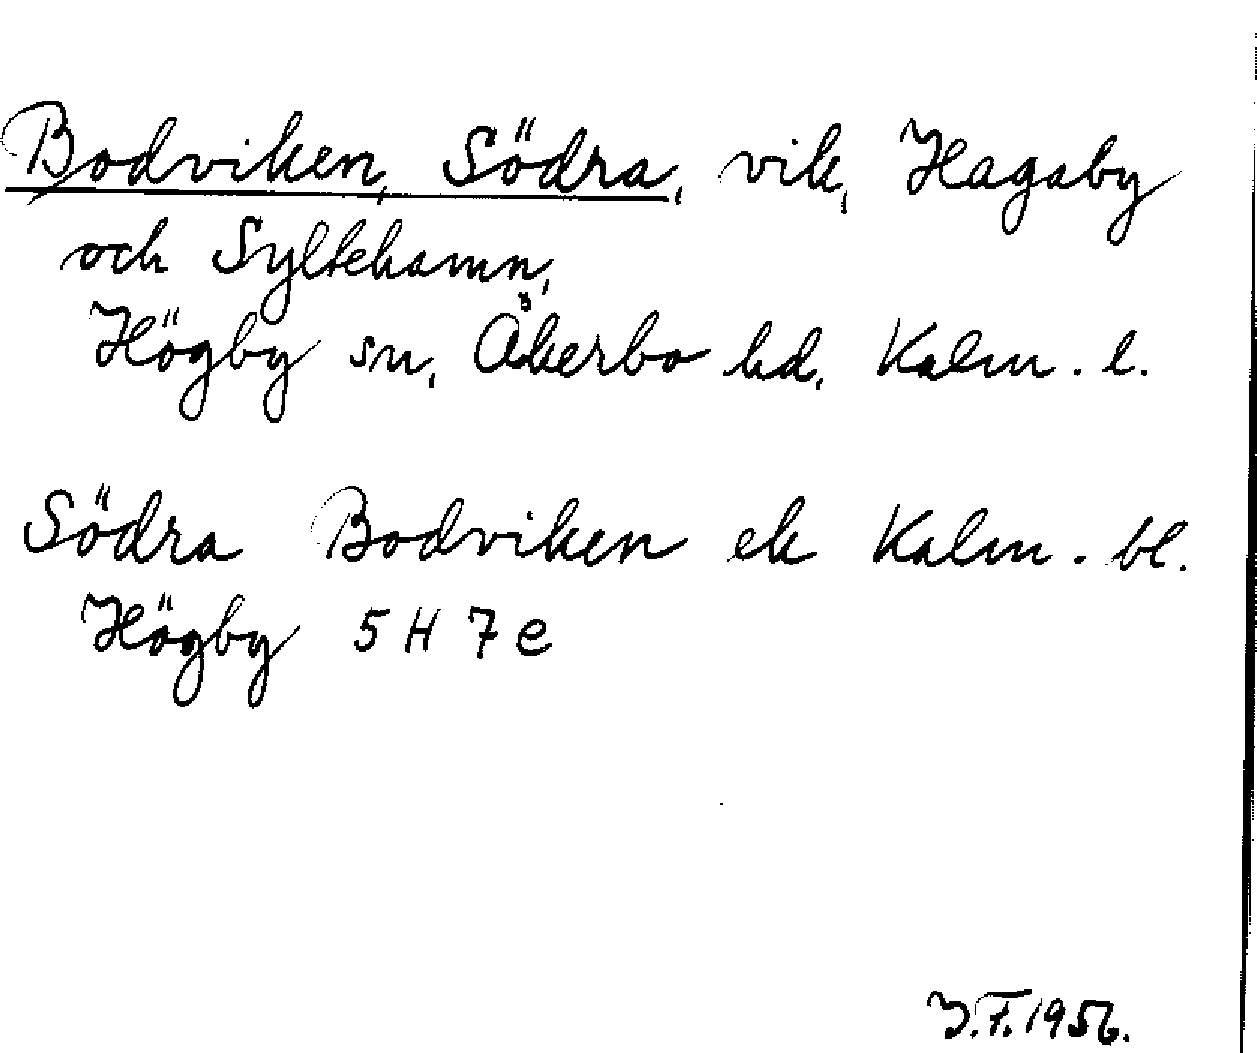 Bodviken, Södra, vik, Hagaby
och Syltehamn,
Högby sn, Åkerbo hd, Kalm. l.
Södra Bodviken ek Kalm. bl.
Högby 5 H 7 e
J.F. 1956.